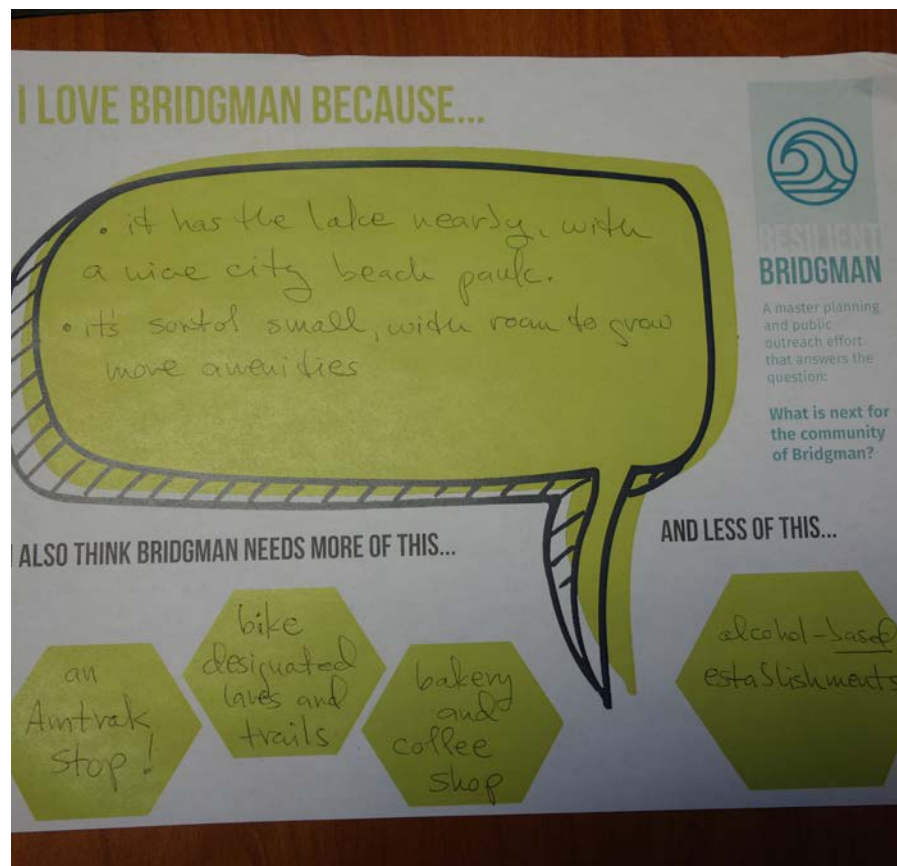 I LOVE BRIDGMAN BECAUSE...
• it has the lake nearby, with
a nice city beach park.
• it's sort of small, with room to grow
more amenities
RESILIENT
BRIDGMAN
A master planning
and public
outreach effort
that answers the
question:
What is next for
the community
of Bridgman?
I ALSO THINK BRIDGMAN NEEDS MORE OF THIS...
an
Amtrak
stop!
bike
designated
lanes and
trails
bakery
and
coffee
shop
AND LESS OF THIS...
alcohol-based
establishments